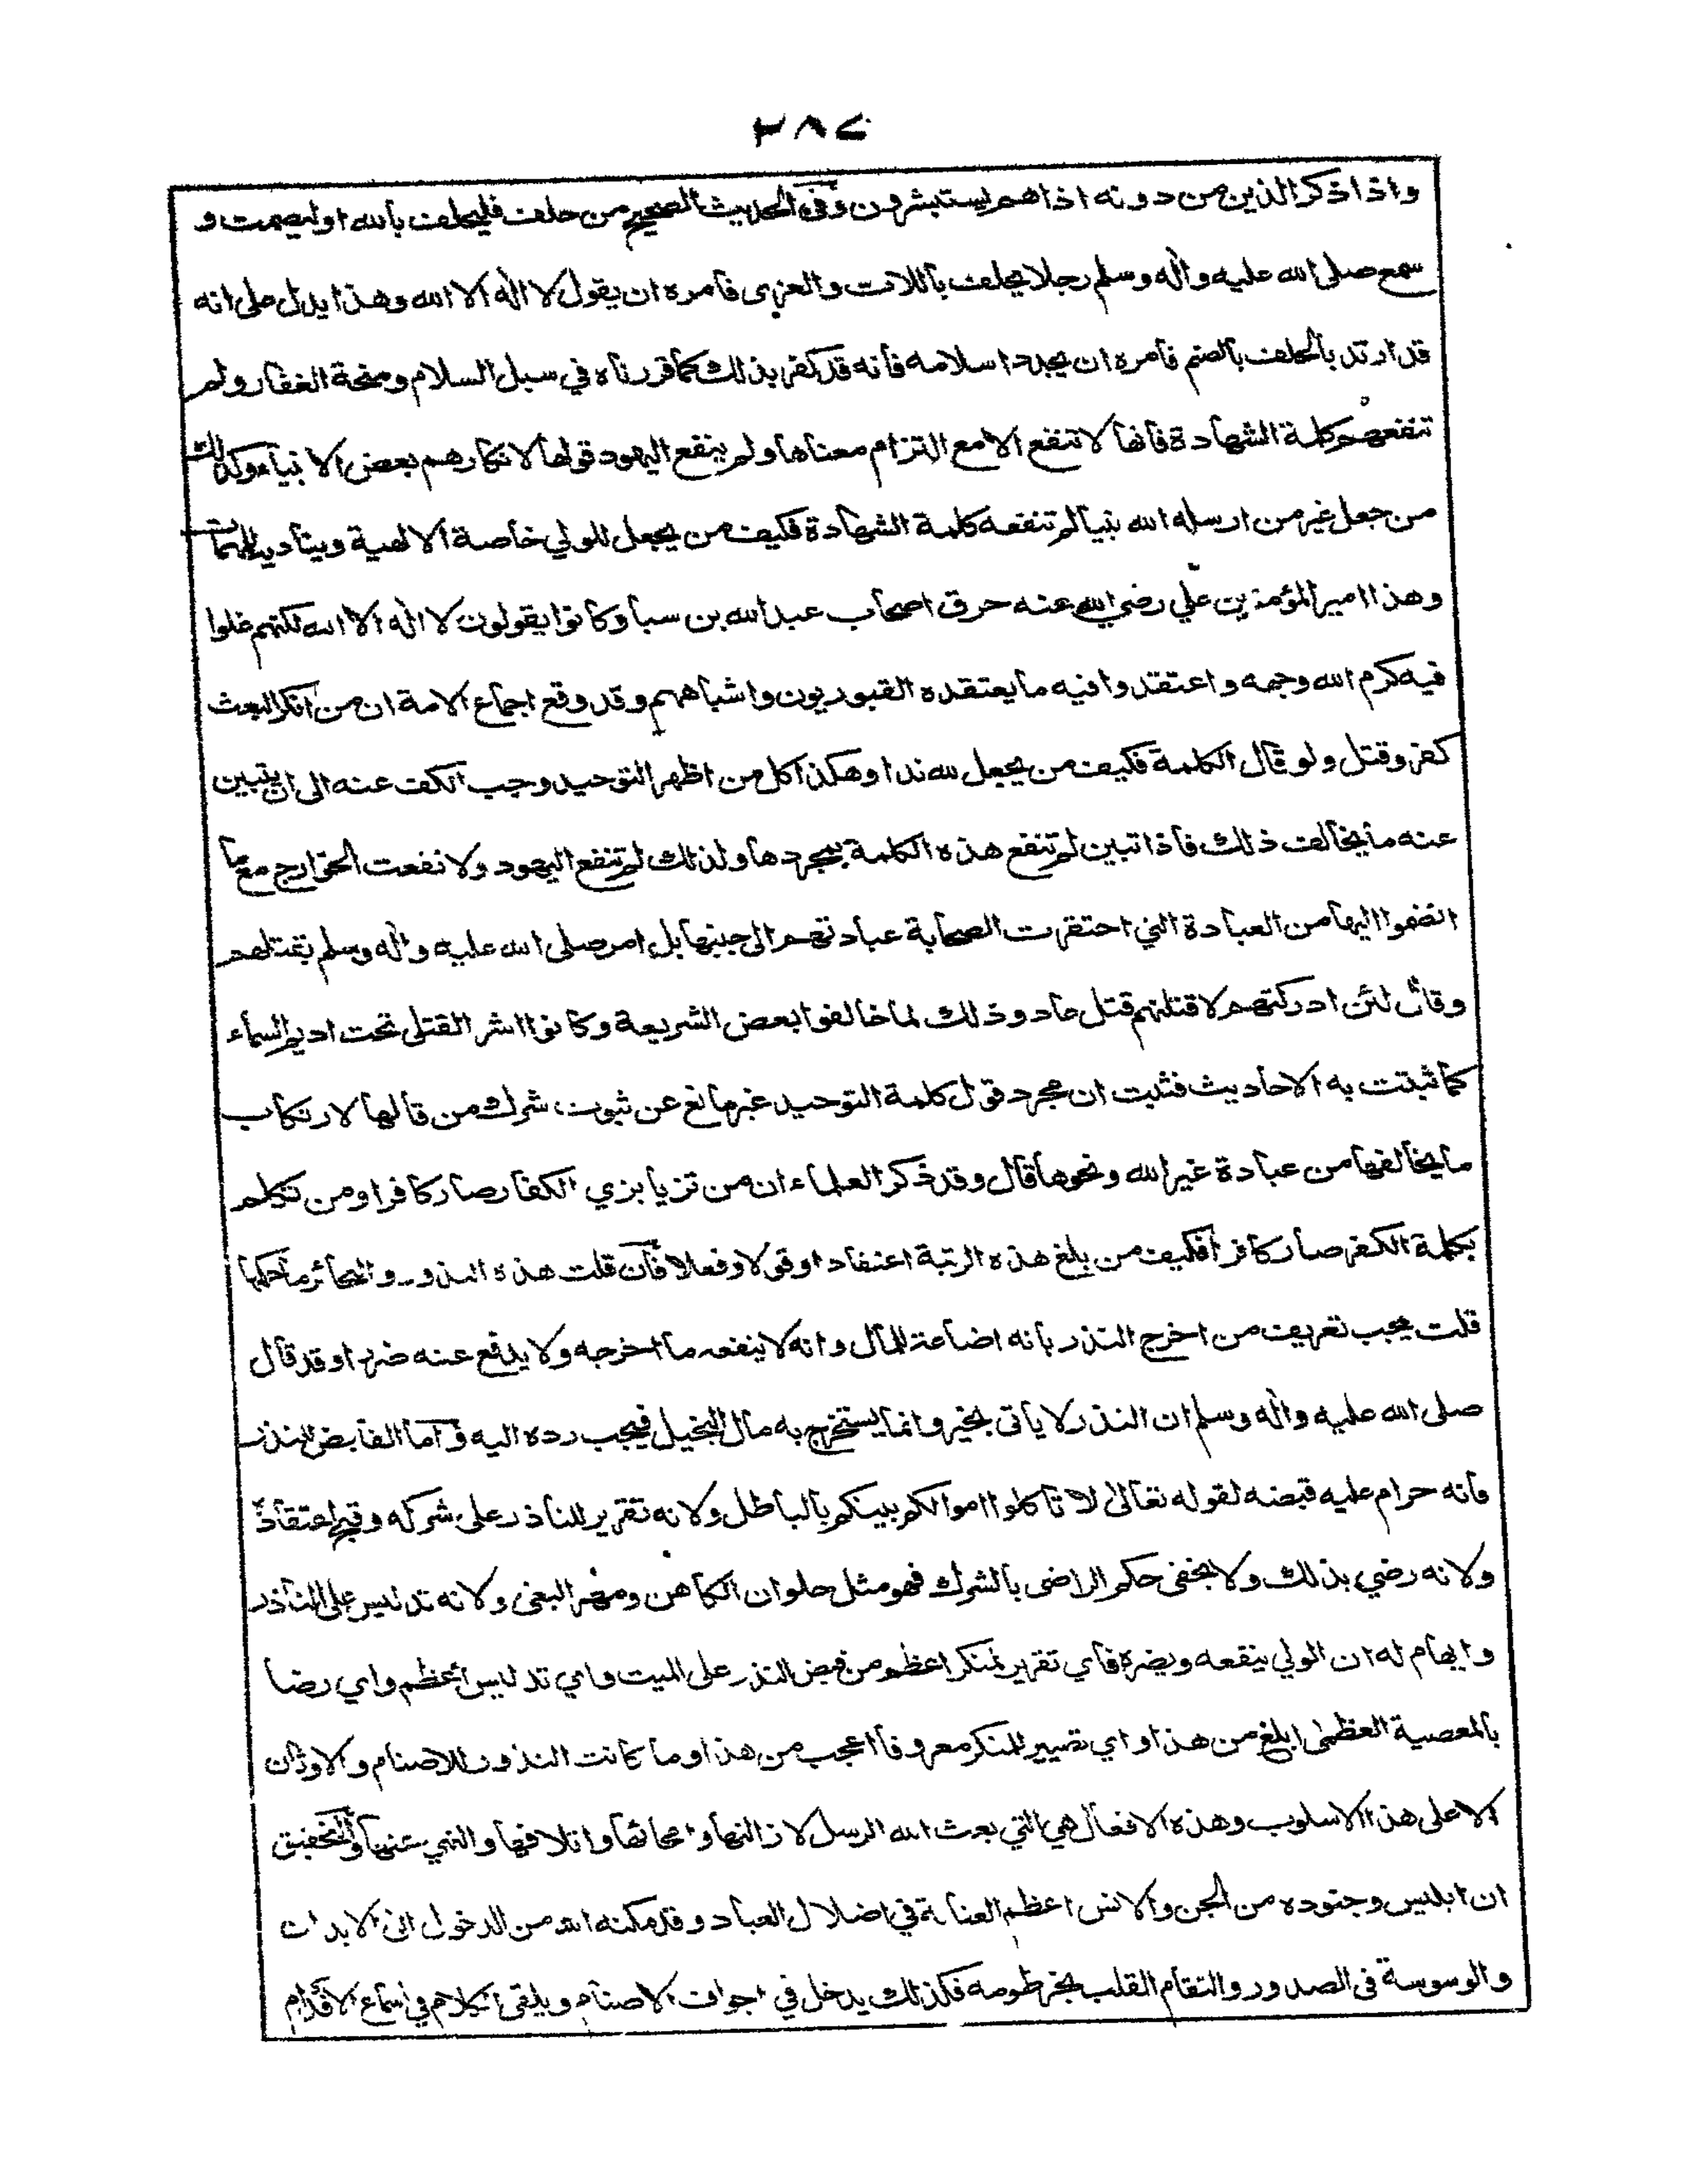 ٣٨٧
واذا ذكر الذين من دونه اذا هم يستبشرون وفي الحديث الصحيح من حلف فليحلف بالله او ليصمت و
سمع صلى الله عليه واٰله وسلم رجلا يحلف باللات والعزى فامره ان يقول لا اله الا الله وهذا يدل على انه
قد ارتد بالحلف بالصنم فامره ان يجدد اسلامه فانه قد كفر بذلك كما قررناه في سبل السلام ومنحة الغفار ولم
تنفعهم كلمة الشهادة فانها لا تنفع الا مع التزام معناها ولم ينفع اليهود قولها لانكارهم بعض الانبياء وكذلك
من جعل غير من ارسله الله نبيا لم تنفعه كلمة الشهادة فكيف من يجعل للولي خاصة الالهية ويناديه للمهمات
وهذا امير المؤمنين علي رضي الله عنه حرق اصحاب عبد الله بن سبا وكانوا يقولون لا اله الا الله لكنهم غلوا
فيه كرم الله وجهه واعتقدوا فيه ما يعتقده القبوريون واشباههم وقد وقع اجماع الامة ان من انكر البعث
كفر وقتل ولو قال الكلمة فكيف من يجعل لله ندا وهكذا كل من اظهر التوحيد وجب الكف عنه الى ان يتبين
عنه ما يخالف ذلك فاذا تبين لم تنفع هذه الكلمة بمجردها ولذلك لم تنفع اليهود ولا نفعت الخوارج مع ما
انضموا اليها من العبادة التي احتقرت الصحابة عبادتهم الى جنبها بل امر صلى الله عليه واٰله وسلم بقتلهم
وقال لئن ادركتهم لاقتلنهم قتل عاد وذلك لما خالفوا بعض الشريعة وكانوا اشر القتلى تحت اديم السماء
كما ثبتت به الاحاديث فثبت ان مجرد قول كلمة التوحيد غير مانع عن ثبوت شرك من قالها لارتكاب
ما يخالفها من عبادة غير الله ونحوها قال وقد ذكر العلماء ان من تزيا بزي الكفار صار كافرا ومن تكلم
بكلمة الكفر صار كافرا فكيف من بلغ هذه الرتبة اعتقادا وقولا وفعلا فان قلت هذه النذور والنحائر ما حكمها
قلت يجب تعريف من اخرج النذر بانه اضاعة للمال وانه لا ينفعه ما اخرجه ولا يدفع عنه ضررا وقد قال
صلى الله عليه واٰله وسلم ان النذر لا ياتي بخير وانما يستخرج به مال البخيل فيجب رده اليه واما القابض للنذر
فانه حرام عليه قبضه لقوله تعالىٰ لا تاكلوا اموالكم بينكم بالباطل ولانه تقرير للناذر على شركه وقبح اعتقاده
ولانه رضي بذلك ولا يخفى حكم الراضي بالشرك فهو مثل حلوان الكاهن ومهر البغي ولانه تدليس على الناذر
وايهام له ان الولي ينفعه ويضره فاي تقرير لمنكر اعظم من قبض النذر على الميت واي تدليس اعظم واي رضا
بالمعصية العظمى ابلغ من هذا واي تصيير للمنكر معروفا اعجب من هذا وما كانت النذور للاصنام والاوثان
الا على هذا الاسلوب وهذه الافعال هي التي بعث الله الرسل لازالتها وامحائها واتلافها والنهي عنها والتحقيق
ان ابليس وجنوده من الجن والانس اعظم العناية في اضلال العباد وقد مكنه الله من الدخول الى الابدان
والوسوسة في الصدور والتقام القلب بخرطومه فكذلك يدخل في اجواف الاصنام ويلقي الكلام في اسماع الاقدام